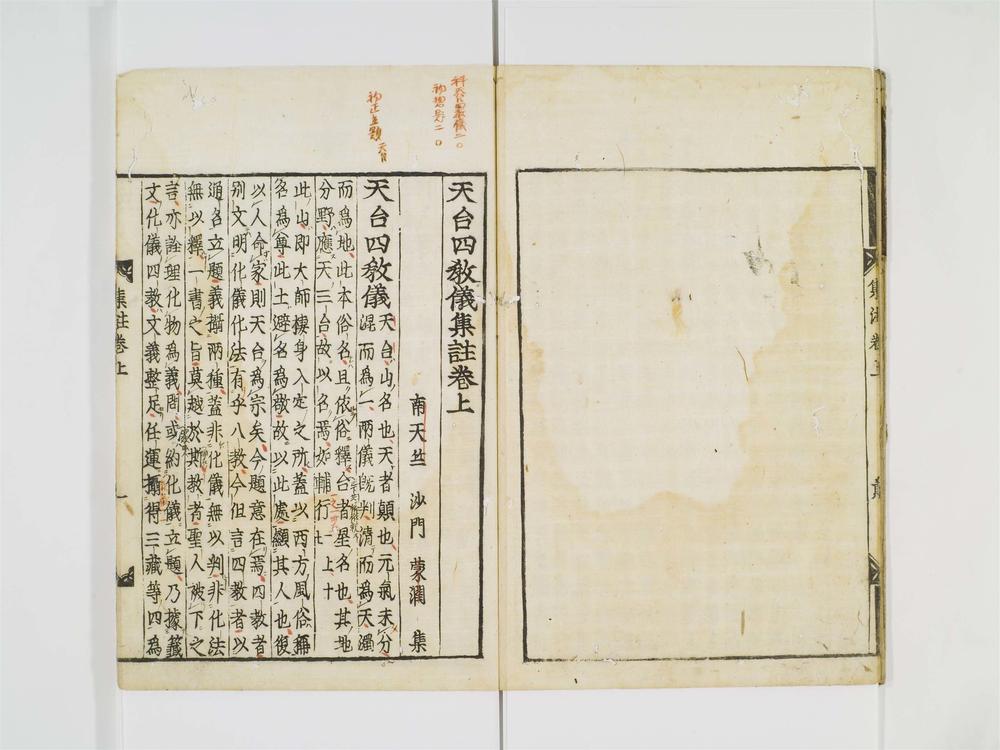 天台四教儀集註卷上
南天竺 沙門 蒙潤 集
天台四教儀 天台山名也天者顛也元氣未分
混而為一兩儀既判清而為天濁
而為地此本俗名且依俗釋台者星名也其地
分野應天三台故以名焉如輔行一上十
此山即大師棲身入定之所蓋以西方風俗稱
名為尊此土避名為敬故以此處顯其人也復
以人命家則天台為宗矣今題意在焉四教者
別文明化儀化法有乎八教今但言四教者以
通名立題義攝兩種蓋非化儀無以判非化法
無以釋一書之旨莫越於斯教者聖人被下之
言亦詮理化物為義問或約化儀立題乃據籤
文化儀四教文義整足任運攝得三藏等四為
集註卷上
一